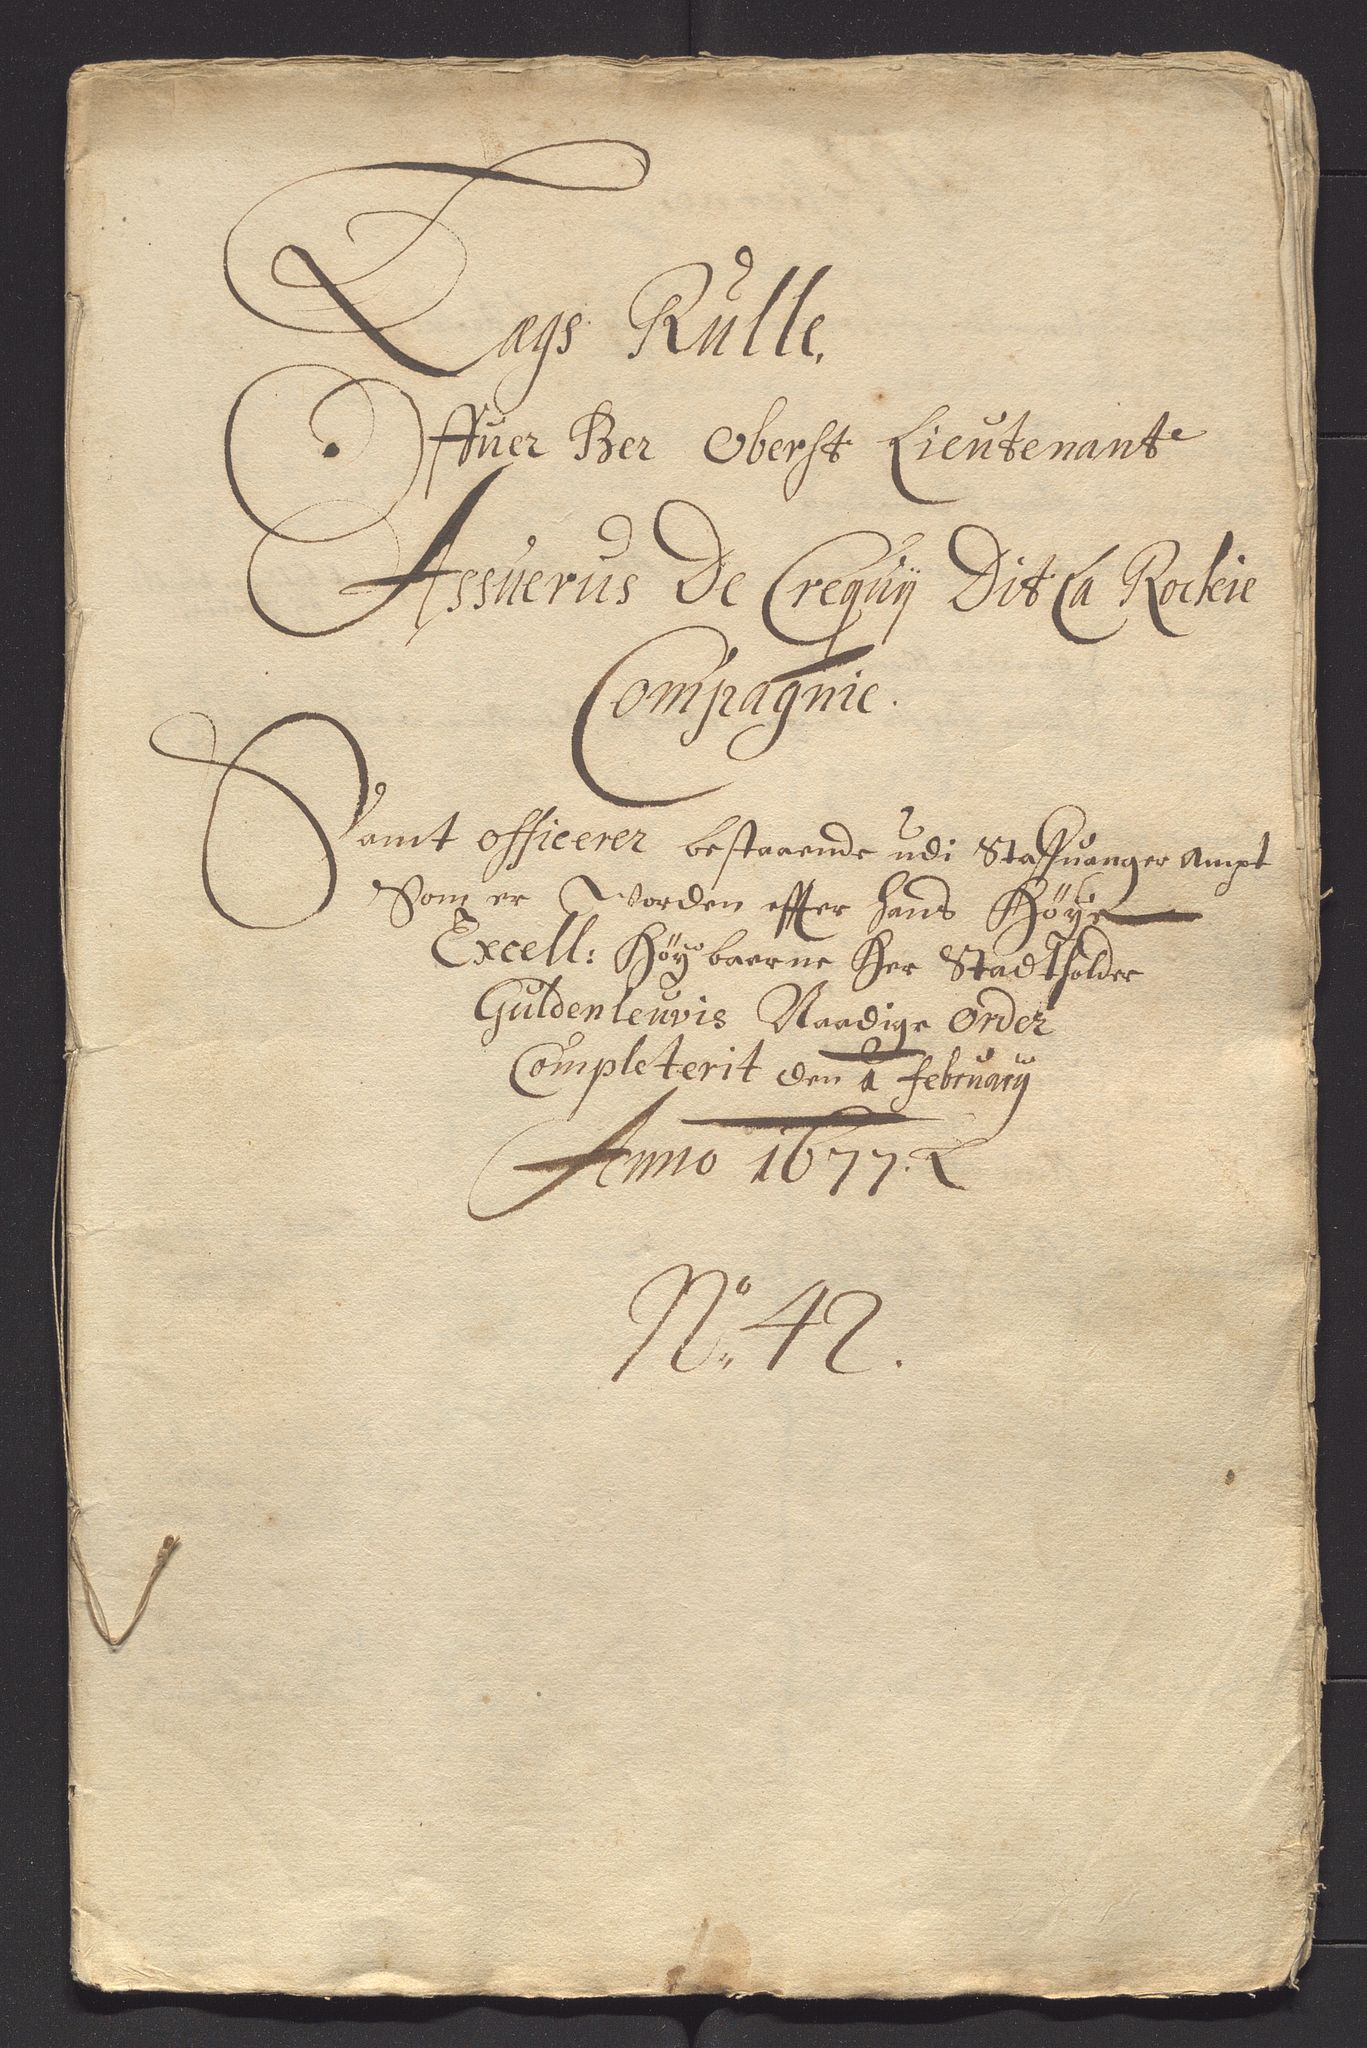 Lægs Rulle.
Offuer Her Oberst Lieutenant
Assuerus De Crequÿ Dit La Rockie
Compagnie.
Samt officerer bestaaende udi Staffuanger Ampt
Som er Vorden effter hans Höÿe
Excell: Höÿbaarne Her Stadtholder
Guldenleuvis Naadige Order
Completerit den 1 Februarÿ
Anno 1677.
No. 42.